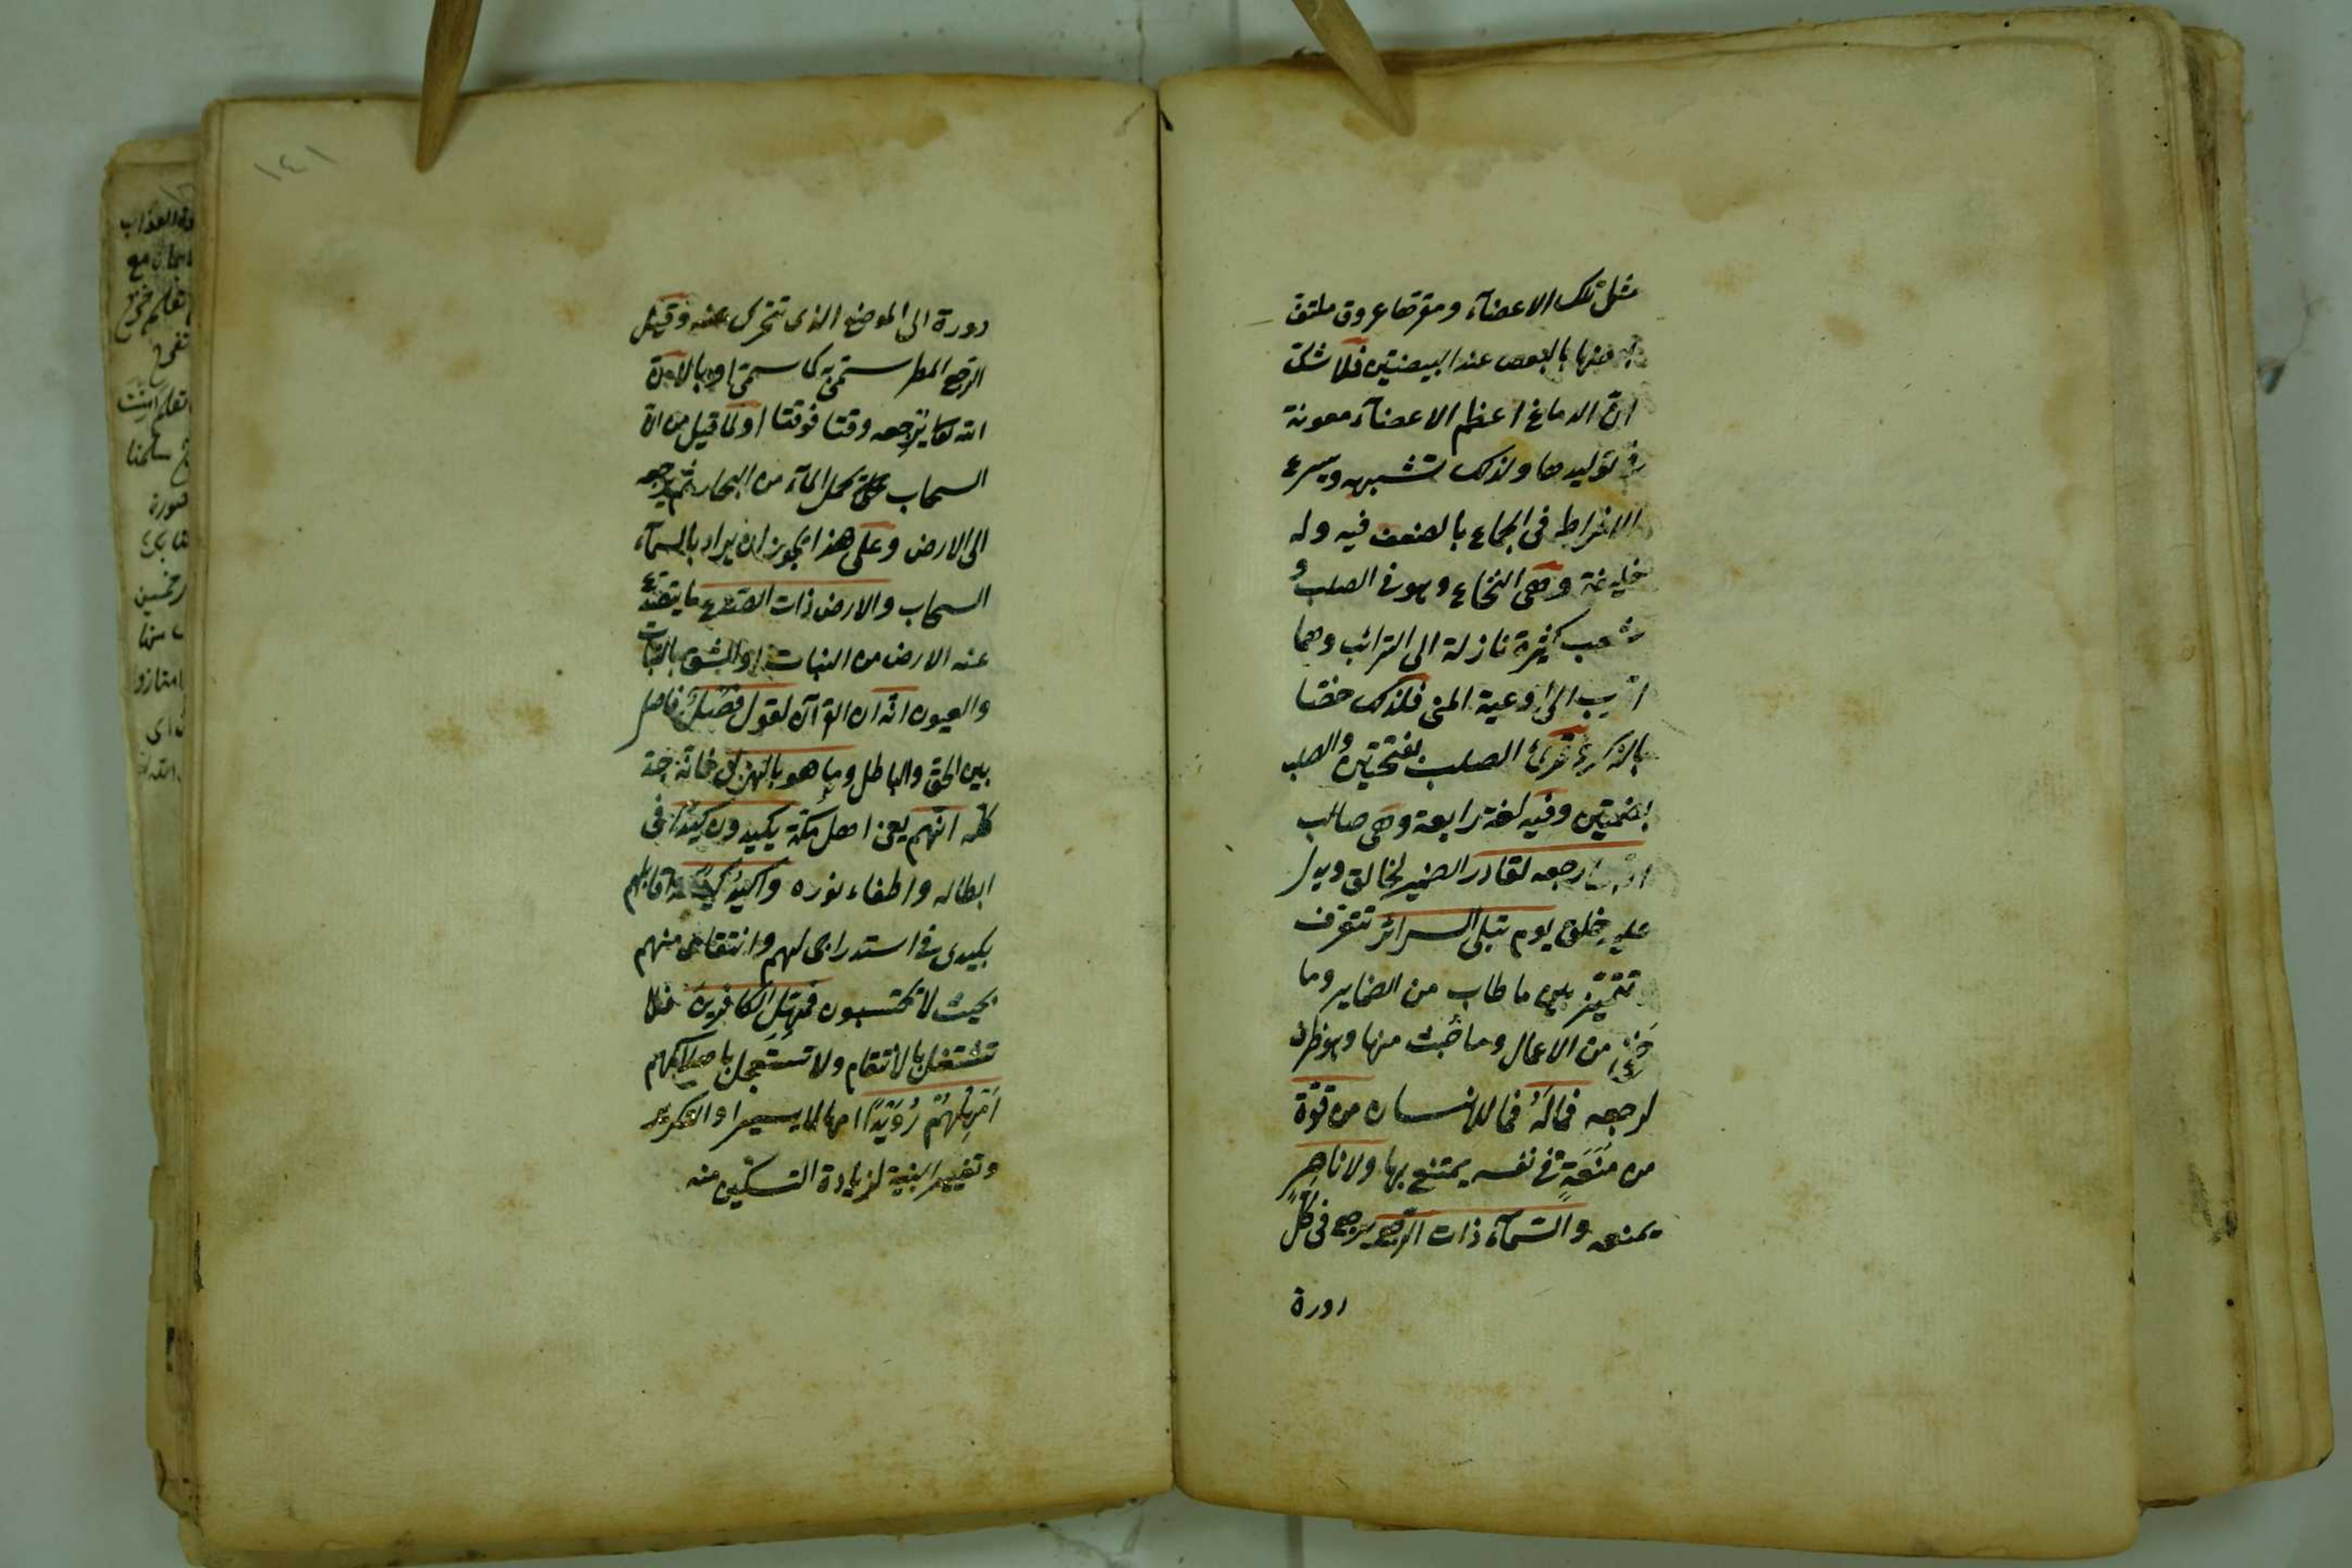 مثل تلك الاعضآء ومقرها عروق ملتف
بعضها بالبعض عند البيضتين فلا شك
ان الدماغ اعظم الاعضآء معونة
في توليدها ولذلك تشبهه ويسرع
الافراط في الجماع بالضعف فيه وله
خليفة وهي النخاع وهو في الصلب و
شعب كثيرة نازلة الى الترائب وهما
اقرب الى اوعية المني فلذلك خصّا
بالذكر وقرئ الصلب بفتحتين والصلب
بضمتين وفيه لغة رابعة وهي صالب
انه على رجعه لقادر الضمير لخالق ويدل
عليه خلق يوم تبلى السرائر تتعرف
وتتميّز بين ما طاب من الضماير وما
خفي من الاعمال وما خبث منها وهو ظرف
لرجعه فماله فما للانسان من قوّة
من مَنَعَةٍ في نفسه يمتنع بها ولا ناصر
يمنعه والسّمآء ذات الرّجع ترجع في كلّ
دورة
١٤١
دورة الى الموضع الذي تتحرك عنه وقيل
الرجع المطر سمّي به كما سمّي اوبا لان
الله تعا يرجعه وقتا فوقتا او لما قيل من ان
السحاب تحمل المآء من البحار ثم يرجعه
الى الارض وعلى هذا يجوز ان يراد بالسمآء
السحاب والارض ذات الصدع ما يتصدّع
عنه الارض من النبات او الشق بالنبات
والعيون انّه ان القرآن لقول فَصْلٌ فاصل
بين الحق والباطل وما هو بالهزل فانّه جدّ
كله انهم يعني اهل مكّة يكيدون كيدًا في
ابطاله واطفاء نوره واكيدُ كيدًا واقابلهم
بكيدي في استدراجي لهم وانتقامي منهم
بحيث لا يحتسبون فمهّل الكافرين فلا
تشتغل بالانتقام ولا تستعجل باهلاكهم
اَمْهِلْهُمْ رُوَيْدًا امهالا يسيرا والتكرير
وتغيير البنية لزيادة التسكين منه